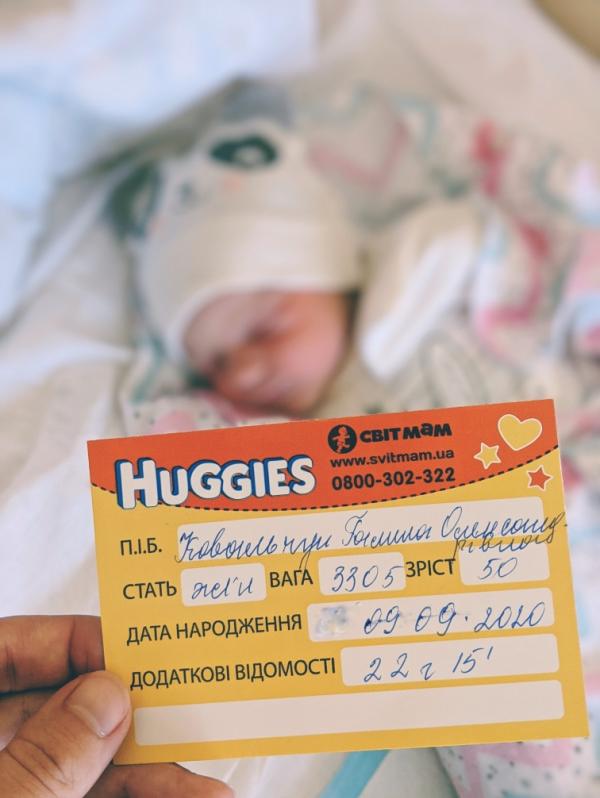 HUGGIES СВІТ МАМ
www.svitmam.ua
0800-302-322
П.І.Б. Ковальчук Галина Олександ-
рівна
СТАТЬ жін ВАГА 3305 ЗРІСТ 50
ДАТА НАРОДЖЕННЯ 09 09. 2020
ДОДАТКОВІ ВІДОМОСТІ 22 г 15'